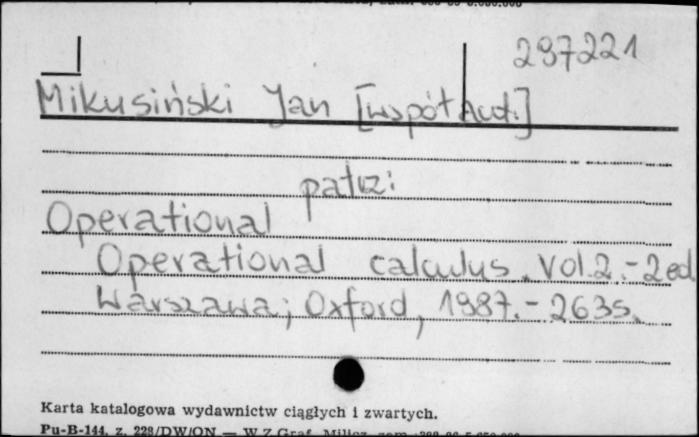 297221
Mikusiński Jan [współaut.]
patrz:
Operational
Operational calculus. Vol.2.-2ed
Warszawa; Oxford, 1987.-263s.
Karta katalogowa wydawnictw ciągłych i zwartych.
Pu-B-144, z. 228/DW/ON — W Z Graf. Milicz, zam.